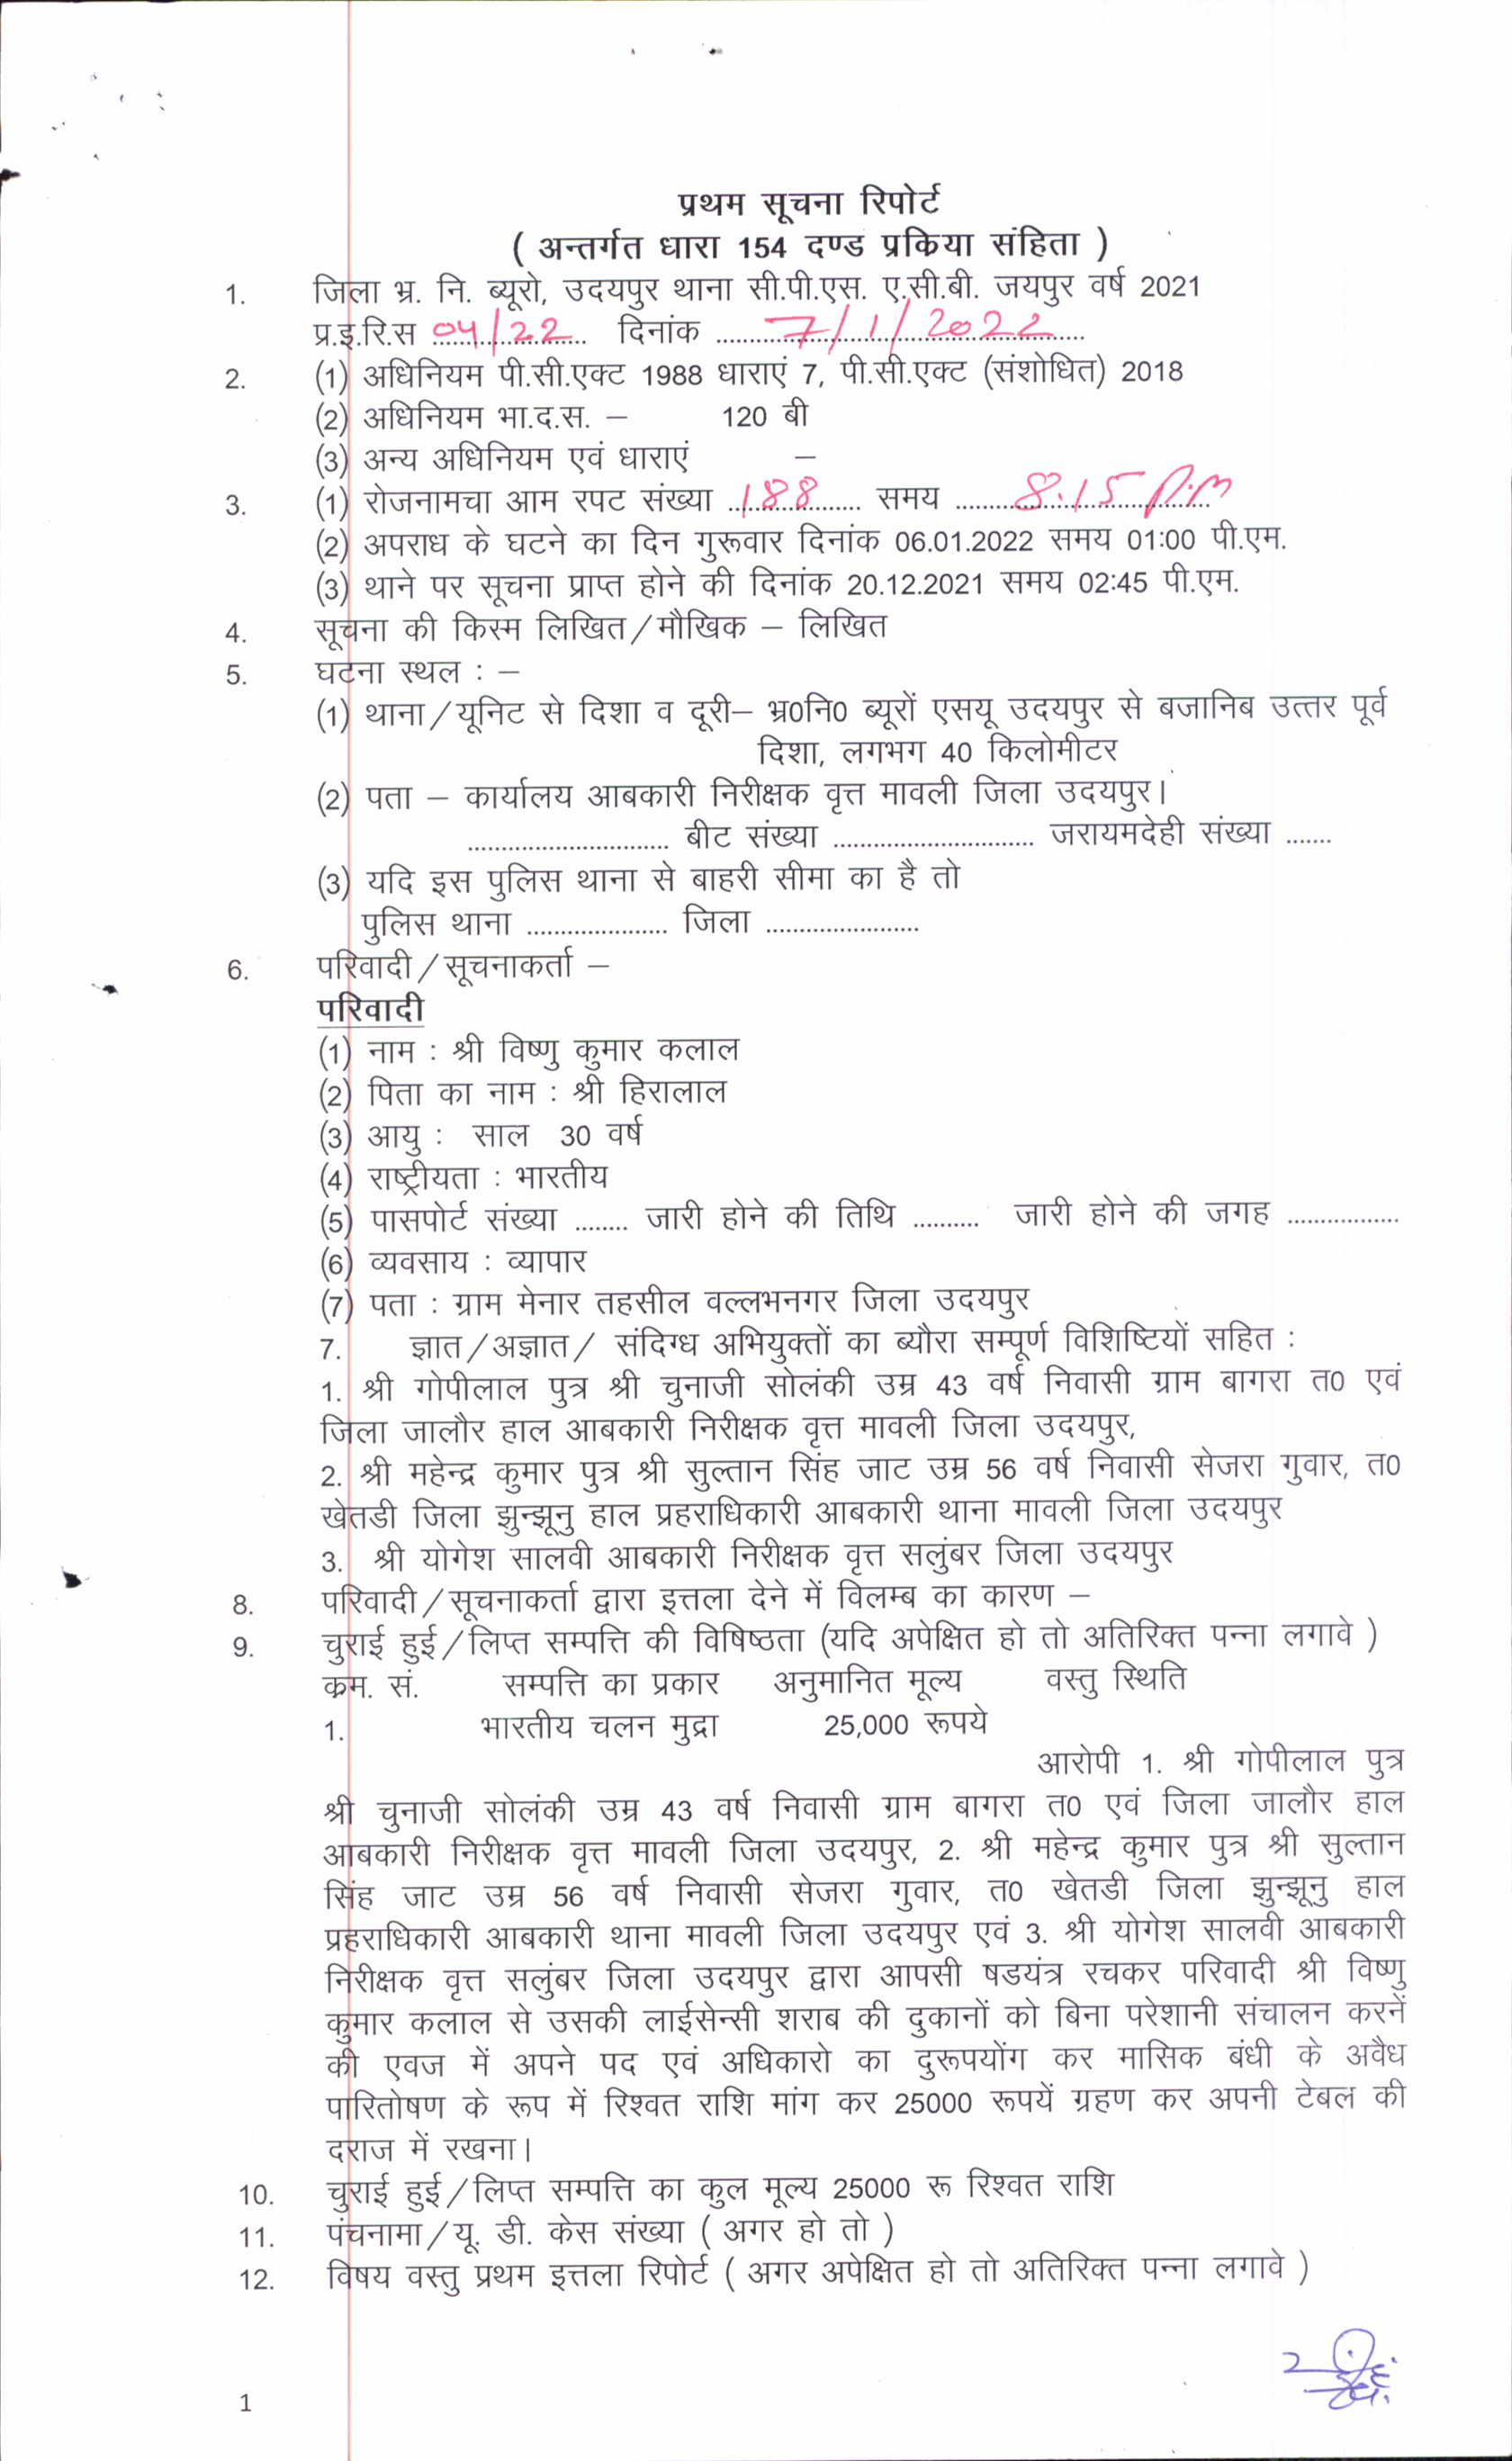 प्रथम सूचना रिपोर्ट
( अन्तर्गत धारा 154 दण्ड प्रकिया संहिता )
1. जिला भ्र. नि. ब्यूरो, उदयपुर थाना सी.पी.एस. ए.सी.बी. जयपुर वर्ष 2021
प्र.इ.रि.स 04/22 दिनांक 7/1/2022
2. (1) अधिनियम पी.सी.एक्ट 1988 धाराएं 7, पी.सी.एक्ट (संशोधित) 2018
(2) अधिनियम भा.द.स. – 120 बी
(3) अन्य अधिनियम एवं धाराएं –
3. (1) रोजनामचा आम रपट संख्या 188 समय 8:15 P.m
(2) अपराध के घटने का दिन गुरूवार दिनांक 06.01.2022 समय 01:00 पी.एम.
(3) थाने पर सूचना प्राप्त होने की दिनांक 20.12.2021 समय 02:45 पी.एम.
4. सूचना की किस्म लिखित/मौखिक – लिखित
5. घटना स्थल : –
(1) थाना/यूनिट से दिशा व दूरी– भ्र0नि0 ब्यूरों एसयू उदयपुर से बजानिब उत्तर पूर्व
दिशा, लगभग 40 किलोमीटर
(2) पता – कार्यालय आबकारी निरीक्षक वृत्त मावली जिला उदयपुर।
.............................. बीट संख्या .............................. जरायमदेही संख्या .......
(3) यदि इस पुलिस थाना से बाहरी सीमा का है तो
पुलिस थाना ..................... जिला .......................
6. परिवादी/सूचनाकर्ता –
परिवादी
(1) नाम : श्री विष्णु कुमार कलाल
(2) पिता का नाम : श्री हिरालाल
(3) आयु : साल 30 वर्ष
(4) राष्ट्रीयता : भारतीय
(5) पासपोर्ट संख्या ........ जारी होने की तिथि .......... जारी होने की जगह .................
(6) व्यवसाय : व्यापार
(7) पता : ग्राम मेनार तहसील वल्लभनगर जिला उदयपुर
7. ज्ञात/अज्ञात/ संदिग्ध अभियुक्तों का ब्यौरा सम्पूर्ण विशिष्टियों सहित :
1. श्री गोपीलाल पुत्र श्री चुनाजी सोलंकी उम्र 43 वर्ष निवासी ग्राम बागरा त0 एवं
जिला जालौर हाल आबकारी निरीक्षक वृत्त मावली जिला उदयपुर,
2. श्री महेन्द्र कुमार पुत्र श्री सुल्तान सिंह जाट उम्र 56 वर्ष निवासी सेजरा गुवार, त0
खेतडी जिला झुन्झूनु हाल प्रहराधिकारी आबकारी थाना मावली जिला उदयपुर
3. श्री योगेश सालवी आबकारी निरीक्षक वृत्त सलुंबर जिला उदयपुर
8. परिवादी/सूचनाकर्ता द्वारा इत्तला देने में विलम्ब का कारण –
9. चुराई हुई/लिप्त सम्पत्ति की विषिष्ठता (यदि अपेक्षित हो तो अतिरिक्त पन्ना लगावे )
कम. सं. सम्पत्ति का प्रकार अनुमानित मूल्य वस्तु स्थिति
1. भारतीय चलन मुद्रा 25,000 रूपये
आरोपी 1. श्री गोपीलाल पुत्र
श्री चुनाजी सोलंकी उम्र 43 वर्ष निवासी ग्राम बागरा त0 एवं जिला जालौर हाल
आबकारी निरीक्षक वृत्त मावली जिला उदयपुर, 2. श्री महेन्द्र कुमार पुत्र श्री सुल्तान
सिंह जाट उम्र 56 वर्ष निवासी सेजरा गुवार, त0 खेतडी जिला झुन्झूनु हाल
प्रहराधिकारी आबकारी थाना मावली जिला उदयपुर एवं 3. श्री योगेश सालवी आबकारी
निरीक्षक वृत्त सलुंबर जिला उदयपुर द्वारा आपसी षडयंत्र रचकर परिवादी श्री विष्णु
कुमार कलाल से उसकी लाईसेन्सी शराब की दुकानों को बिना परेशानी संचालन करनें
की एवज में अपने पद एवं अधिकारो का दुरूपयोंग कर मासिक बंधी के अवैध
पारितोषण के रूप में रिश्वत राशि मांग कर 25000 रूपयें ग्रहण कर अपनी टेबल की
दराज में रखना।
10. चुराई हुई/लिप्त सम्पत्ति का कुल मूल्य 25000 रू रिश्वत राशि
11. पंचनामा/यू. डी. केस संख्या ( अगर हो तो )
12. विषय वस्तु प्रथम इत्तला रिपोर्ट ( अगर अपेक्षित हो तो अतिरिक्त पन्ना लगावे )
1